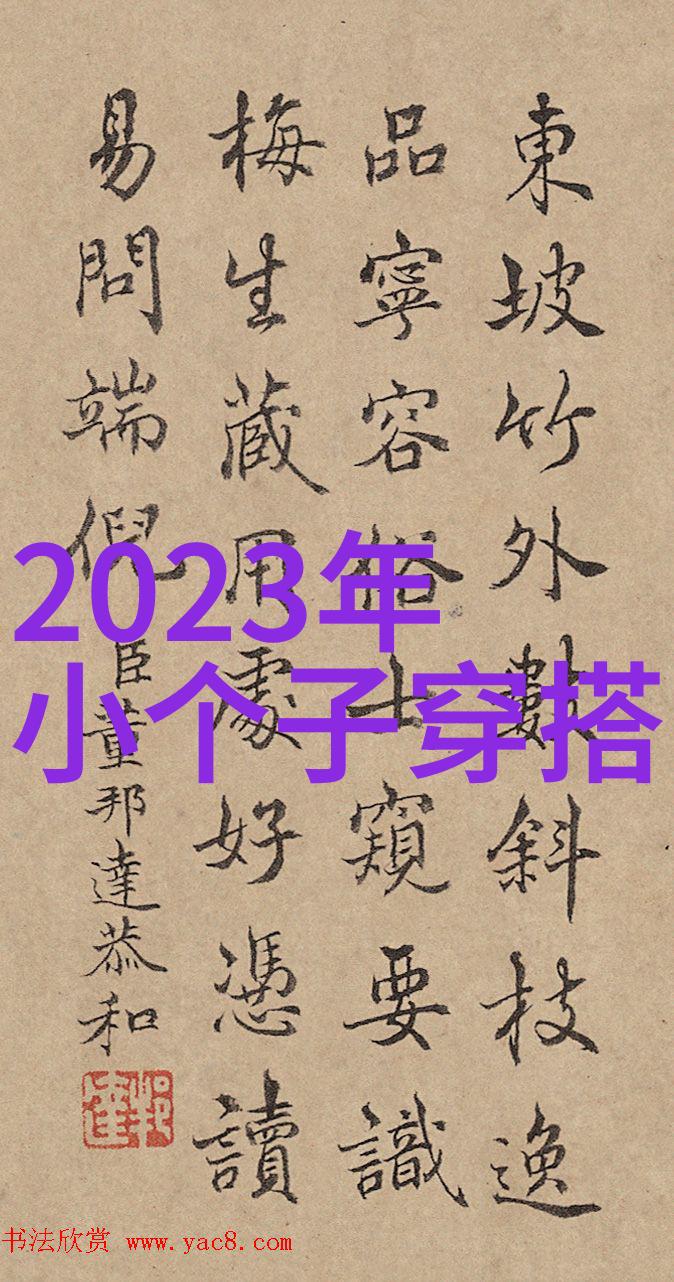 東坡竹外數斜枝逸
品寧容俗士窺要識
梅生藏用處好憑讀
易問端倪臣董邦達恭和
2023年
小个子穿搭
书法欣赏 www.yac8.com